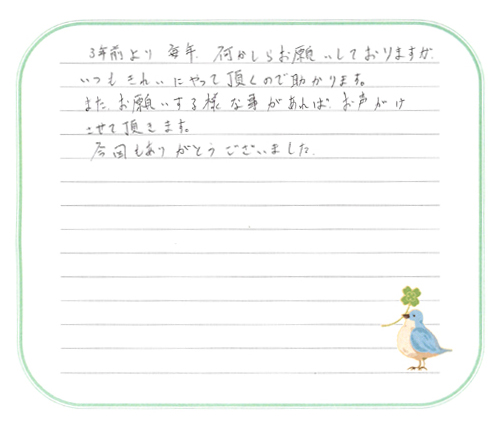 3年前より 毎年、何かしらお願いしておりますが、
いつもきれいにやって頂くので助かります。
また、お願いする様な事があれば、お声がけ
させて頂きます。
今回もありがとうございました。